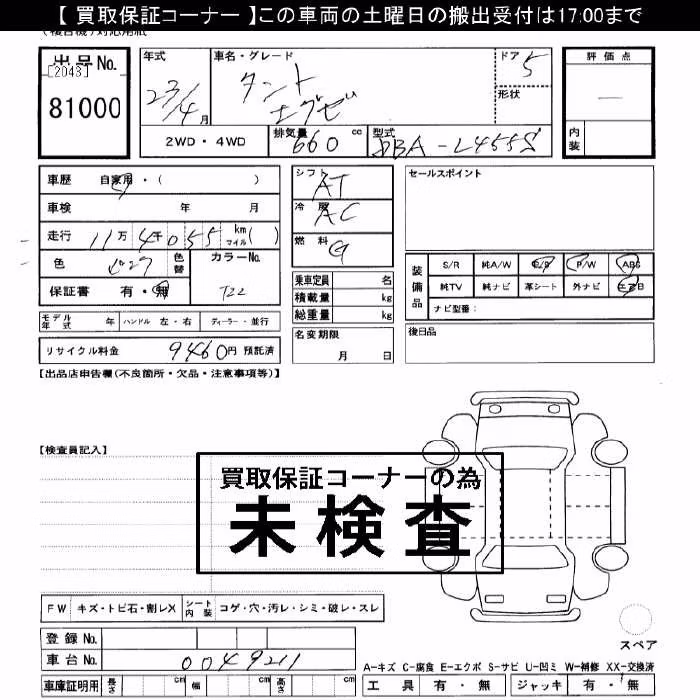 【 買取保証コーナー 】この車両の土曜日の搬出受付は17:00まで
出品No.
[2043]
81000
年式 車名・グレード ドア 5
23/4月 タント エグゼ 形状
2WD・4WD 排気量 660 cc 型式 DBA-L455S
評価点
—
内装
車歴 自家用・( )
車検 年 月
走行 11万4千055 km マイル( )
色 色替 カラーNo.
保証書 有・無 T22
モデル年式 年 ハンドル 左・右 ディーラー・並行
リサイクル料金 9460円 預託済
シフト AT
冷房 AC
燃料 G
乗車定員 名
積載量 kg
総重量 kg
名変期限 月 日
セールスポイント
装備品 S/R 純A/W P/S P/W ABS
純TV 純ナビ 革シート 外ナビ エアB
ナビ型番:
後日品
【出品店申告欄(不良箇所・欠品・注意事項等)】
【検査員記入】
買取保証コーナーの為
未検査
FW キズ・トビ石・割レX シート内装 コゲ・穴・汚レ・シミ・破レ・スレ
登録No.
車台No. 0049211
車庫証明用 長さ cm 幅 cm 高さ cm
スペア
A-キズ C-腐食 E-エクボ S-サビ U-凹ミ W-補修 XX-交換済
工具 有・無 ジャッキ 有・無